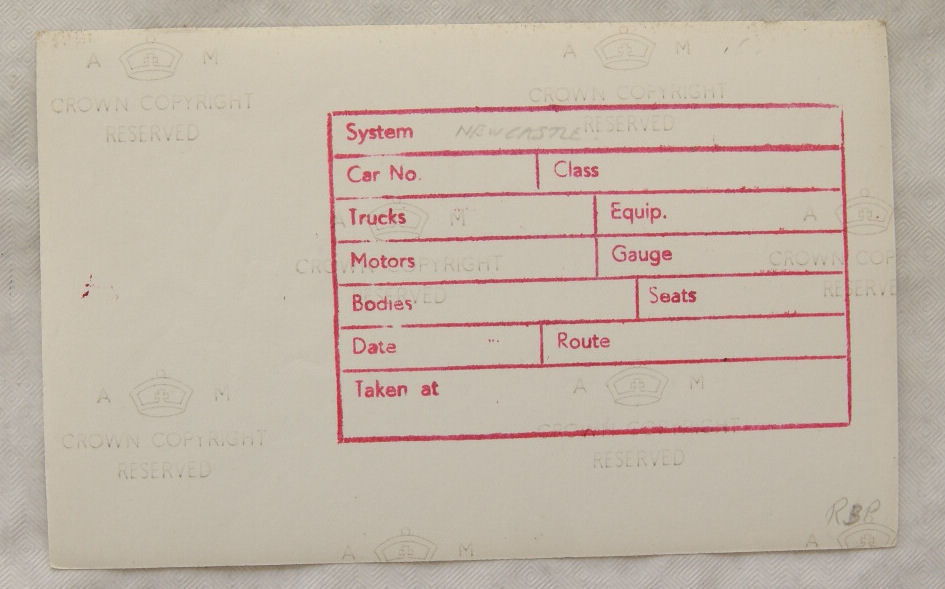 A M
A M
CROWN COPYRIGHT
CROWN COPYRIGHT
RESERVED
RESERVED
System NEWCASTLE
Car No. Class
Trucks Equip.
A M
A
Motors Gauge
CROWN COPYRIGHT
CROWN COP
Bodies Seats
RESERVED
RESERVE
Date Route
Taken at
A M
A M
CROWN COPYRIGHT
CROWN COPYRIGHT
RESERVED
RESERVED
RBR
A M
A